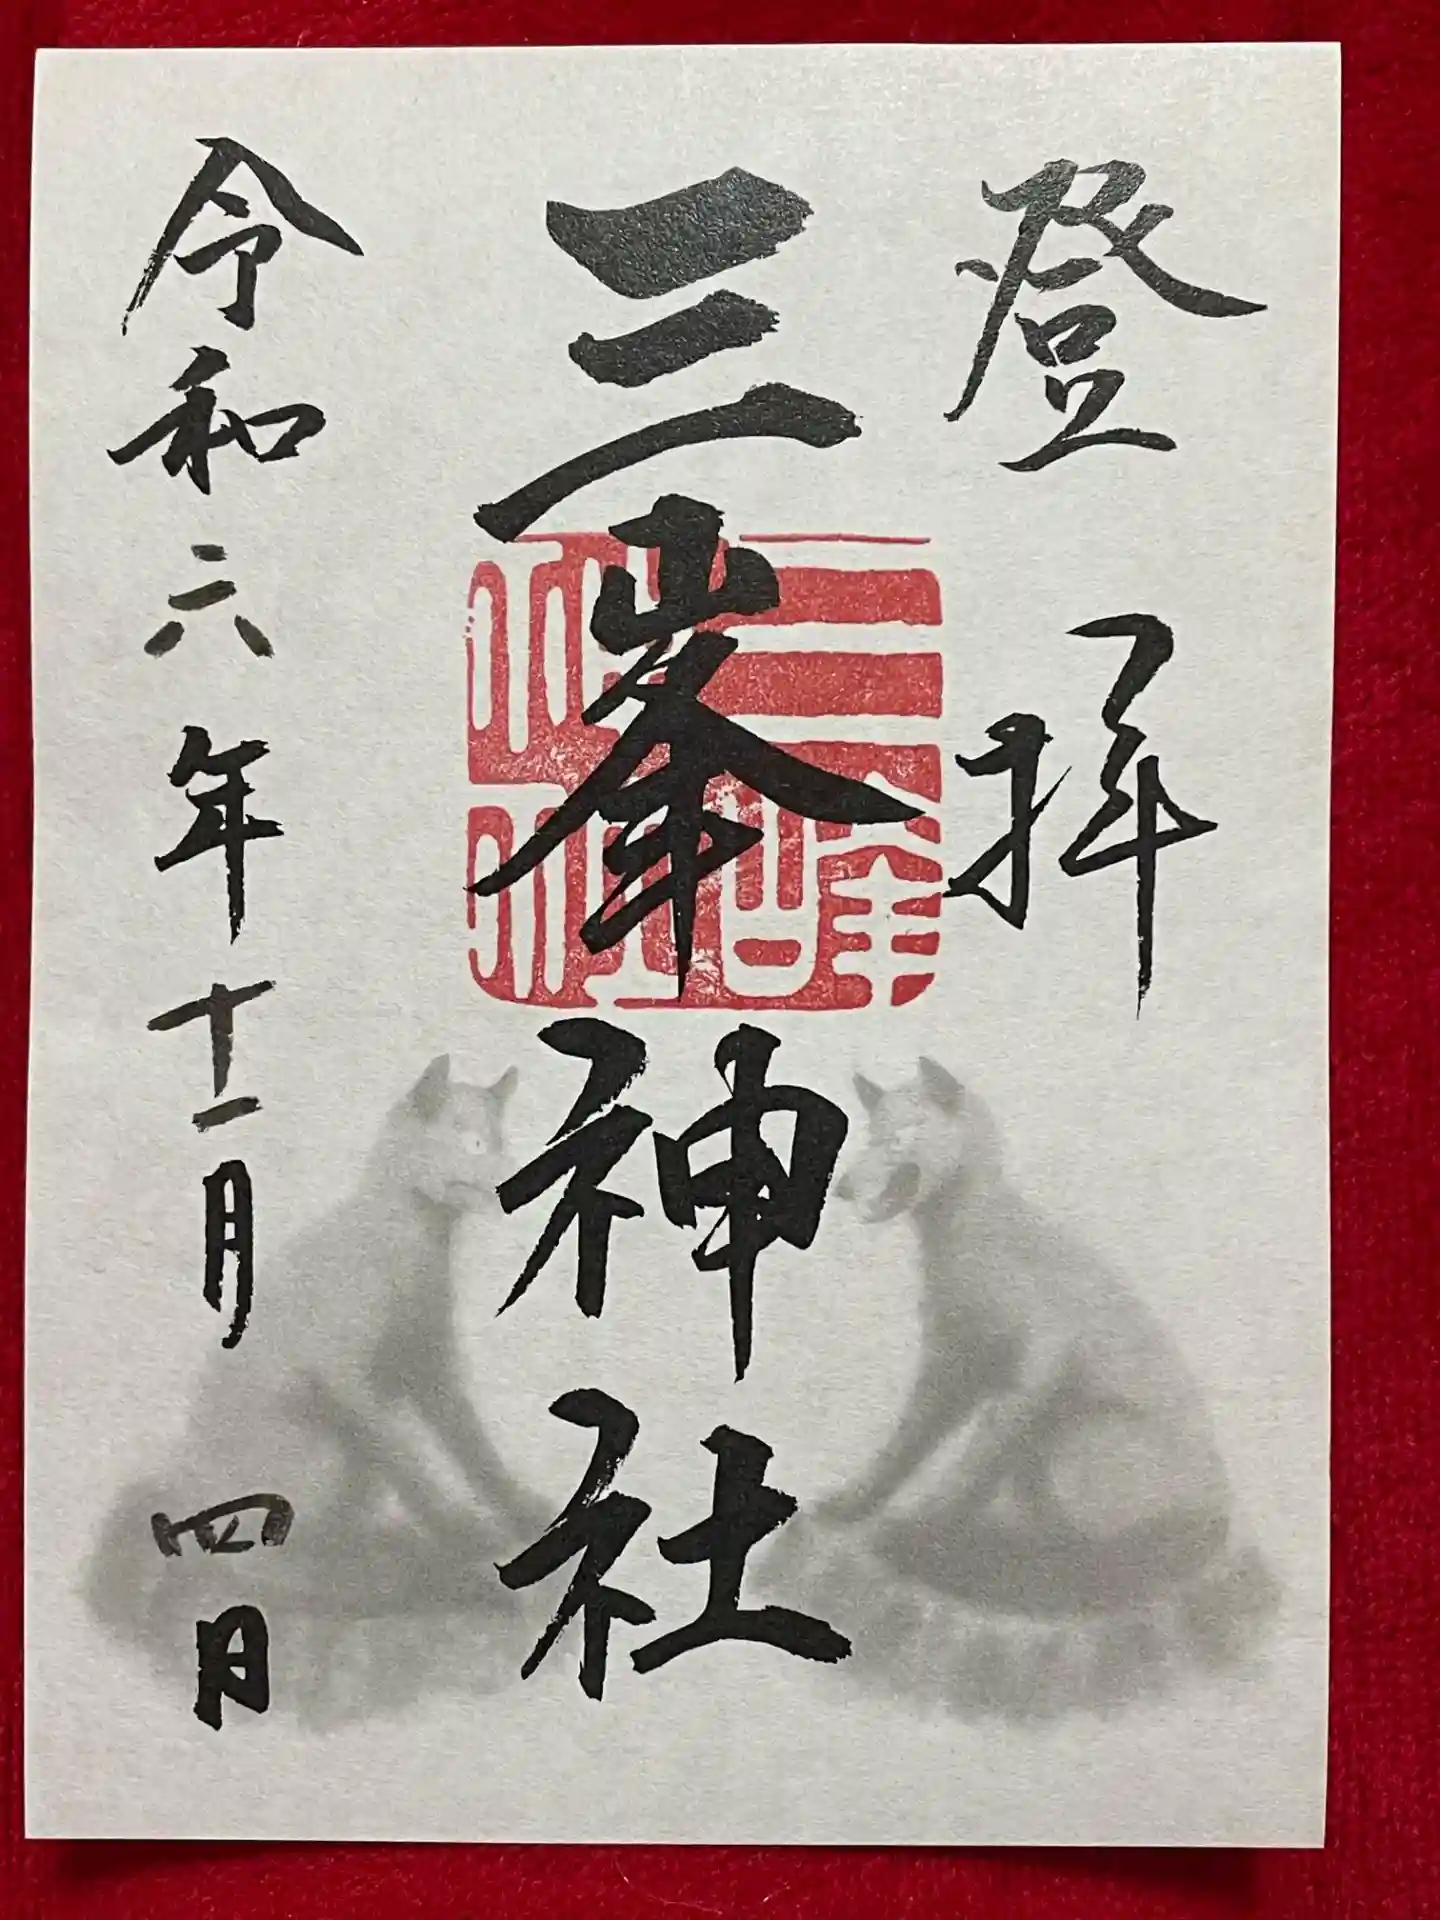 登拝
三峯神社
三峰神社
令和六年十一月四日